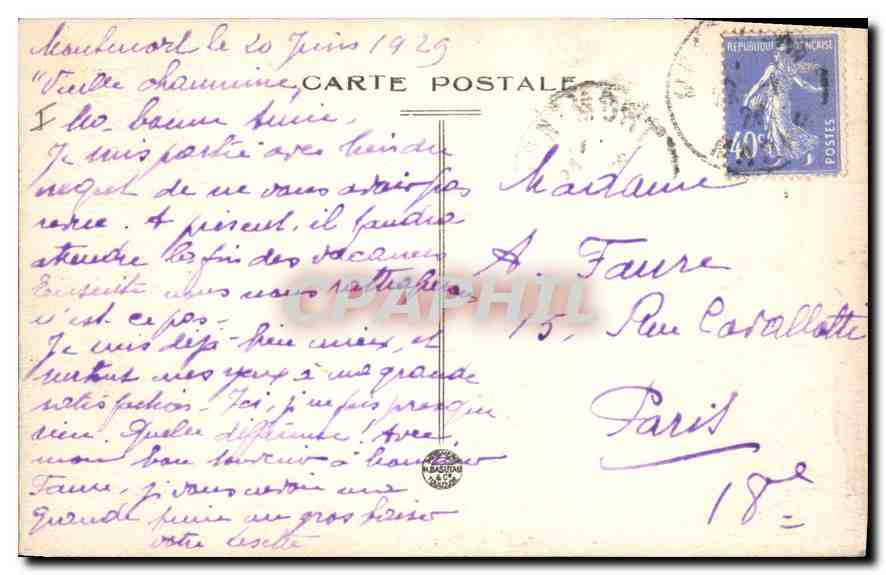 le 20 Juin 1929
"Vieille chaumine"
CARTE POSTALE
REPUBLIQUE FRANÇAISE
40c
POSTES
Ma bonne
Je suis partie avec bien du
regret de ne vous avoir pas
revue. A présent, il faudra
attendre la fin des vacances
Ensuite nous nous
n'est ce pas-
Je suis déjà bien mieux, et
surtout mes yeux à ma grande
satisfaction - Ici, je ne fais presque
rien. Quelle différence! Avec
mon bon souvenir à
Faure, je vous envoie ma
grande un gros baiser
votre Lisette
Madame
A. Faure
15, Rue Cavallotti
Paris
18e
CPAPHIL
TOULOUSE